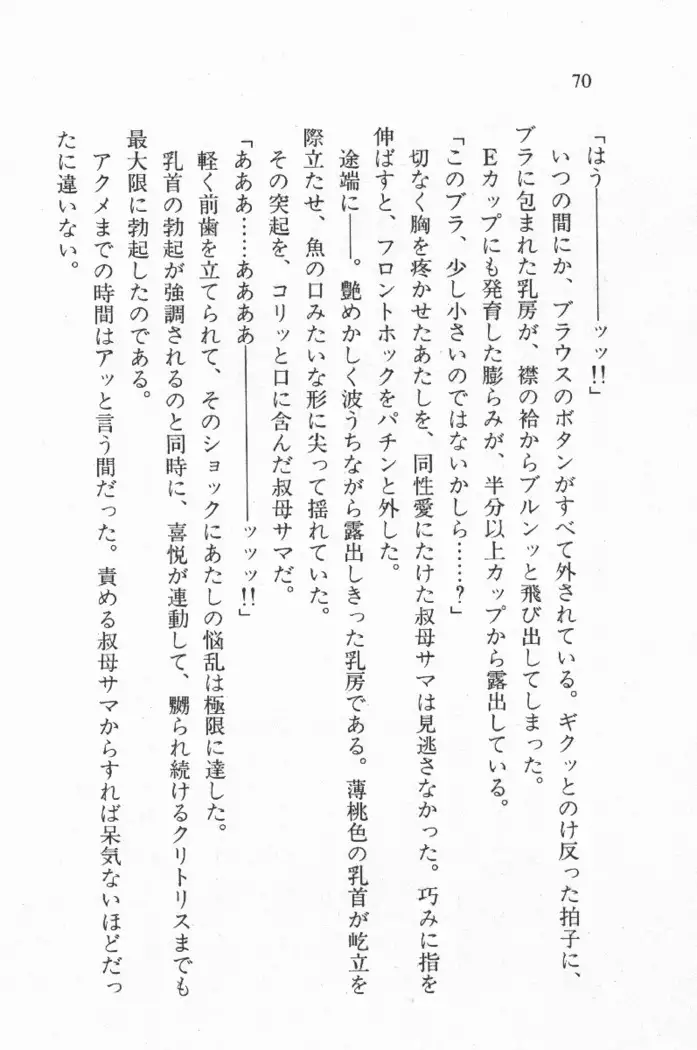 70
「はう――――――ッッ!!」
いつの間にか、ブラウスのボタンがすべて外されている。ギクッとのけ反った拍子に、
ブラに包まれた乳房が、襟の袷からブルンッと飛び出してしまった。
Eカップにも発育した膨らみが、半分以上カップから露出している。
「このブラ、少し小さいのではないかしら……?」
切なく胸を疼かせたあたしを、同性愛にたけた叔母サマは見逃さなかった。巧みに指を
伸ばすと、フロントホックをパチンと外した。
途端に――。艶めかしく波うちながら露出しきった乳房である。薄桃色の乳首が屹立を
際立たせ、魚の口みたいな形に尖って揺れていた。
その突起を、コリッと口に含んだ叔母サマだ。
「あああ……ああああ――――――ッッッ!!」
軽く前歯を立てられて、そのショックにあたしの悩乱は極限に達した。
乳首の勃起が強調されるのと同時に、喜悦が連動して、嬲られ続けるクリトリスまでも
最大限に勃起したのである。
アクメまでの時間はアッと言う間だった。責める叔母サマからすれば呆気ないほどだっ
たに違いない。